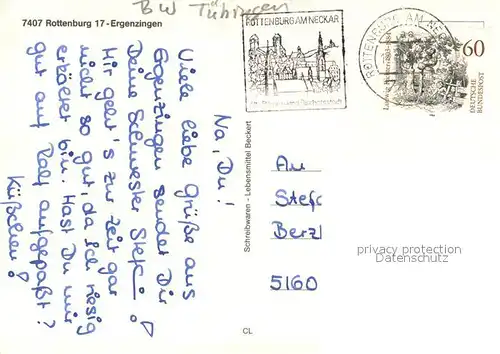 BW Tübingen
7407 Rottenburg 17 - Ergenzingen
ROTTENBURG AM NECKAR
ROTTENBURG AM NECKAR
60
DEUTSCHE
BUNDESPOST
Na, Du!
Viele liebe Grüße aus
Ergenzingen sendet Dir
Deine Schwester Stefi!
Mir geht's zur Zeit gar
nicht so gut, da ich riesig
erkältet bin. Hast Du mir
gut auf Ralf aufgepaßt?
Küßchen!
Schreibwaren - Lebensmittel Beckert
An
Stefc
Berzl
5160
privacy protection
Datenschutz
CL